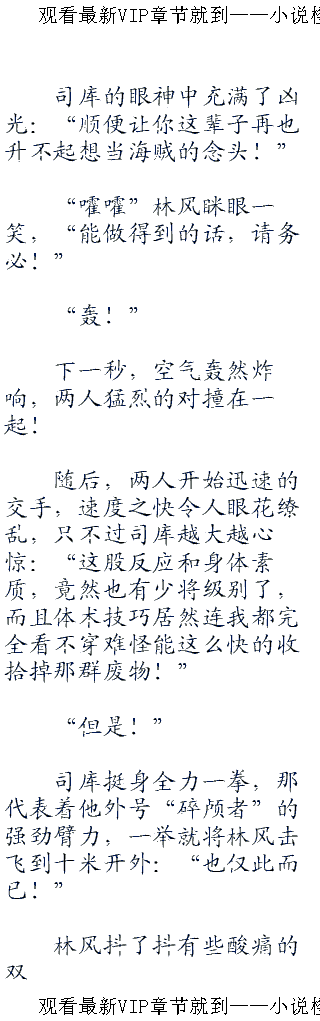 观看最新VIP章节就到——小说
司库的眼神中充满了凶
光：“顺便让你这辈子再也
升不起想当海贼的念头！”
“嚯嚯”林风眯眼一
笑，“能做得到的话，请务
必！”
“轰！”
下一秒，空气轰然炸
响，两人猛烈的对撞在一
起！
随后，两人开始迅速的
交手，速度之快令人眼花缭
乱，只不过司库越大越心
惊：“这股反应和身体素
质，竟然也有少将级别了，
而且体术技巧居然连我都完
全看不穿难怪能这么快的收
拾掉那群废物！”
“但是！”
司库挺身全力一拳，那
代表着他外号“碎颅者”的
强劲臂力，一举就将林风击
飞到十米开外：“也仅此而
已！”
林风抖了抖有些酸痛的
双
观看最新VIP章节就到——小说